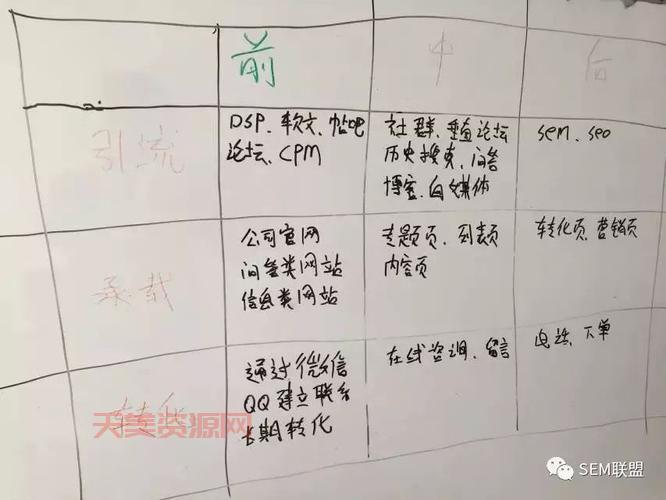 前 中 后
引流
DSP、软文、帖吧
论坛、CPM
社群、垂直论坛
历史搜索、问答
博客、自媒体
sem、seo
承载
公司官网
问答类网站
信息类网站
专题页、列表页
内容页
转化页、营销页
转化
通过微信
QQ建立联系
长期转化
在线咨询、留言
电话、下单
天美资源网
SEM联盟